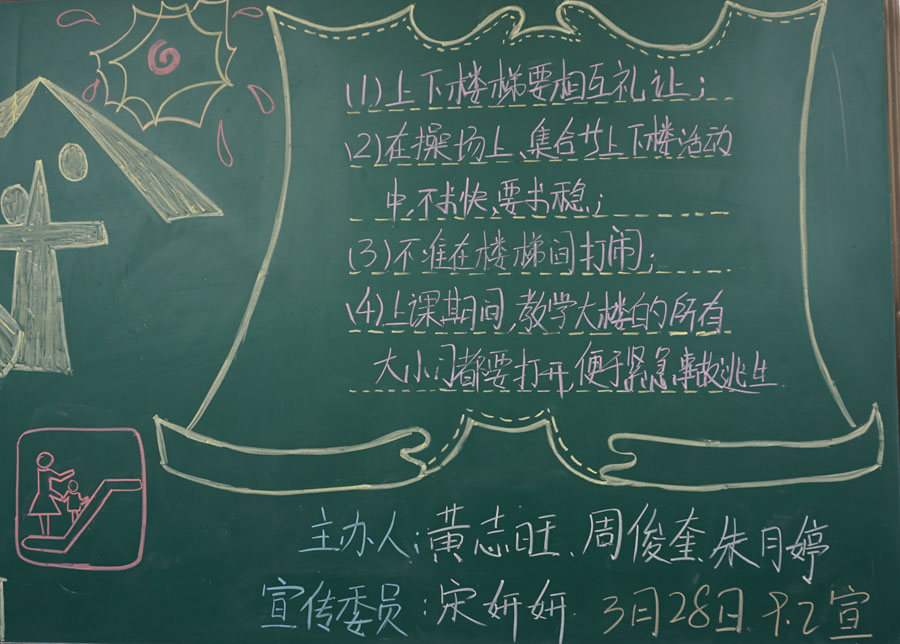 (1)上下楼梯要相互礼让;
(2)在操场上、集合廿上下楼活动
中,不求快,要求稳;
(3)不准在楼梯间打闹;
(4)上课期间,教学大楼的所有
大小门都要打开,便于紧急事故逃生
主办人:黄志旺、周俊奎.朱月婷
宣传委员:宋妍妍. 3月28日 9.2宣